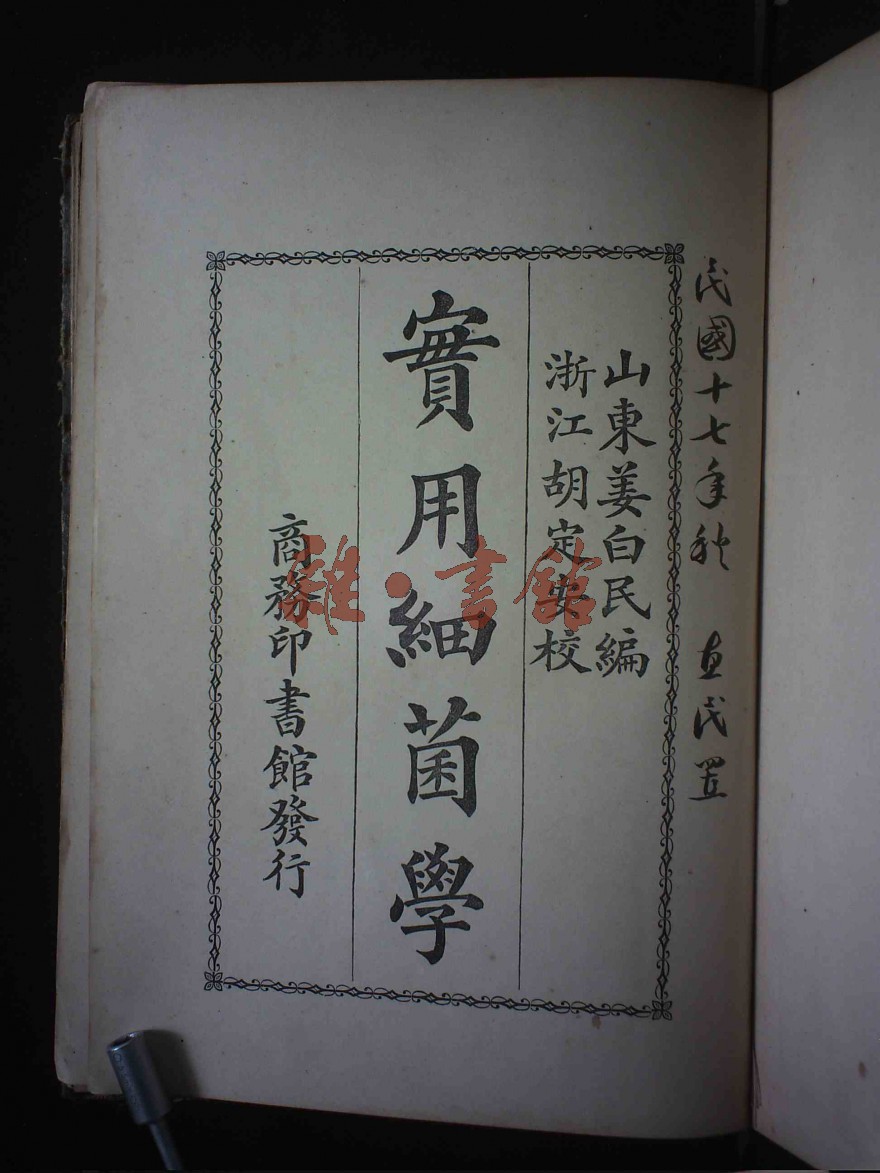 民國十七年秋 直民置
山東姜白民編
浙江胡定安校
實用細菌學
商務印書館發行
雜·書館